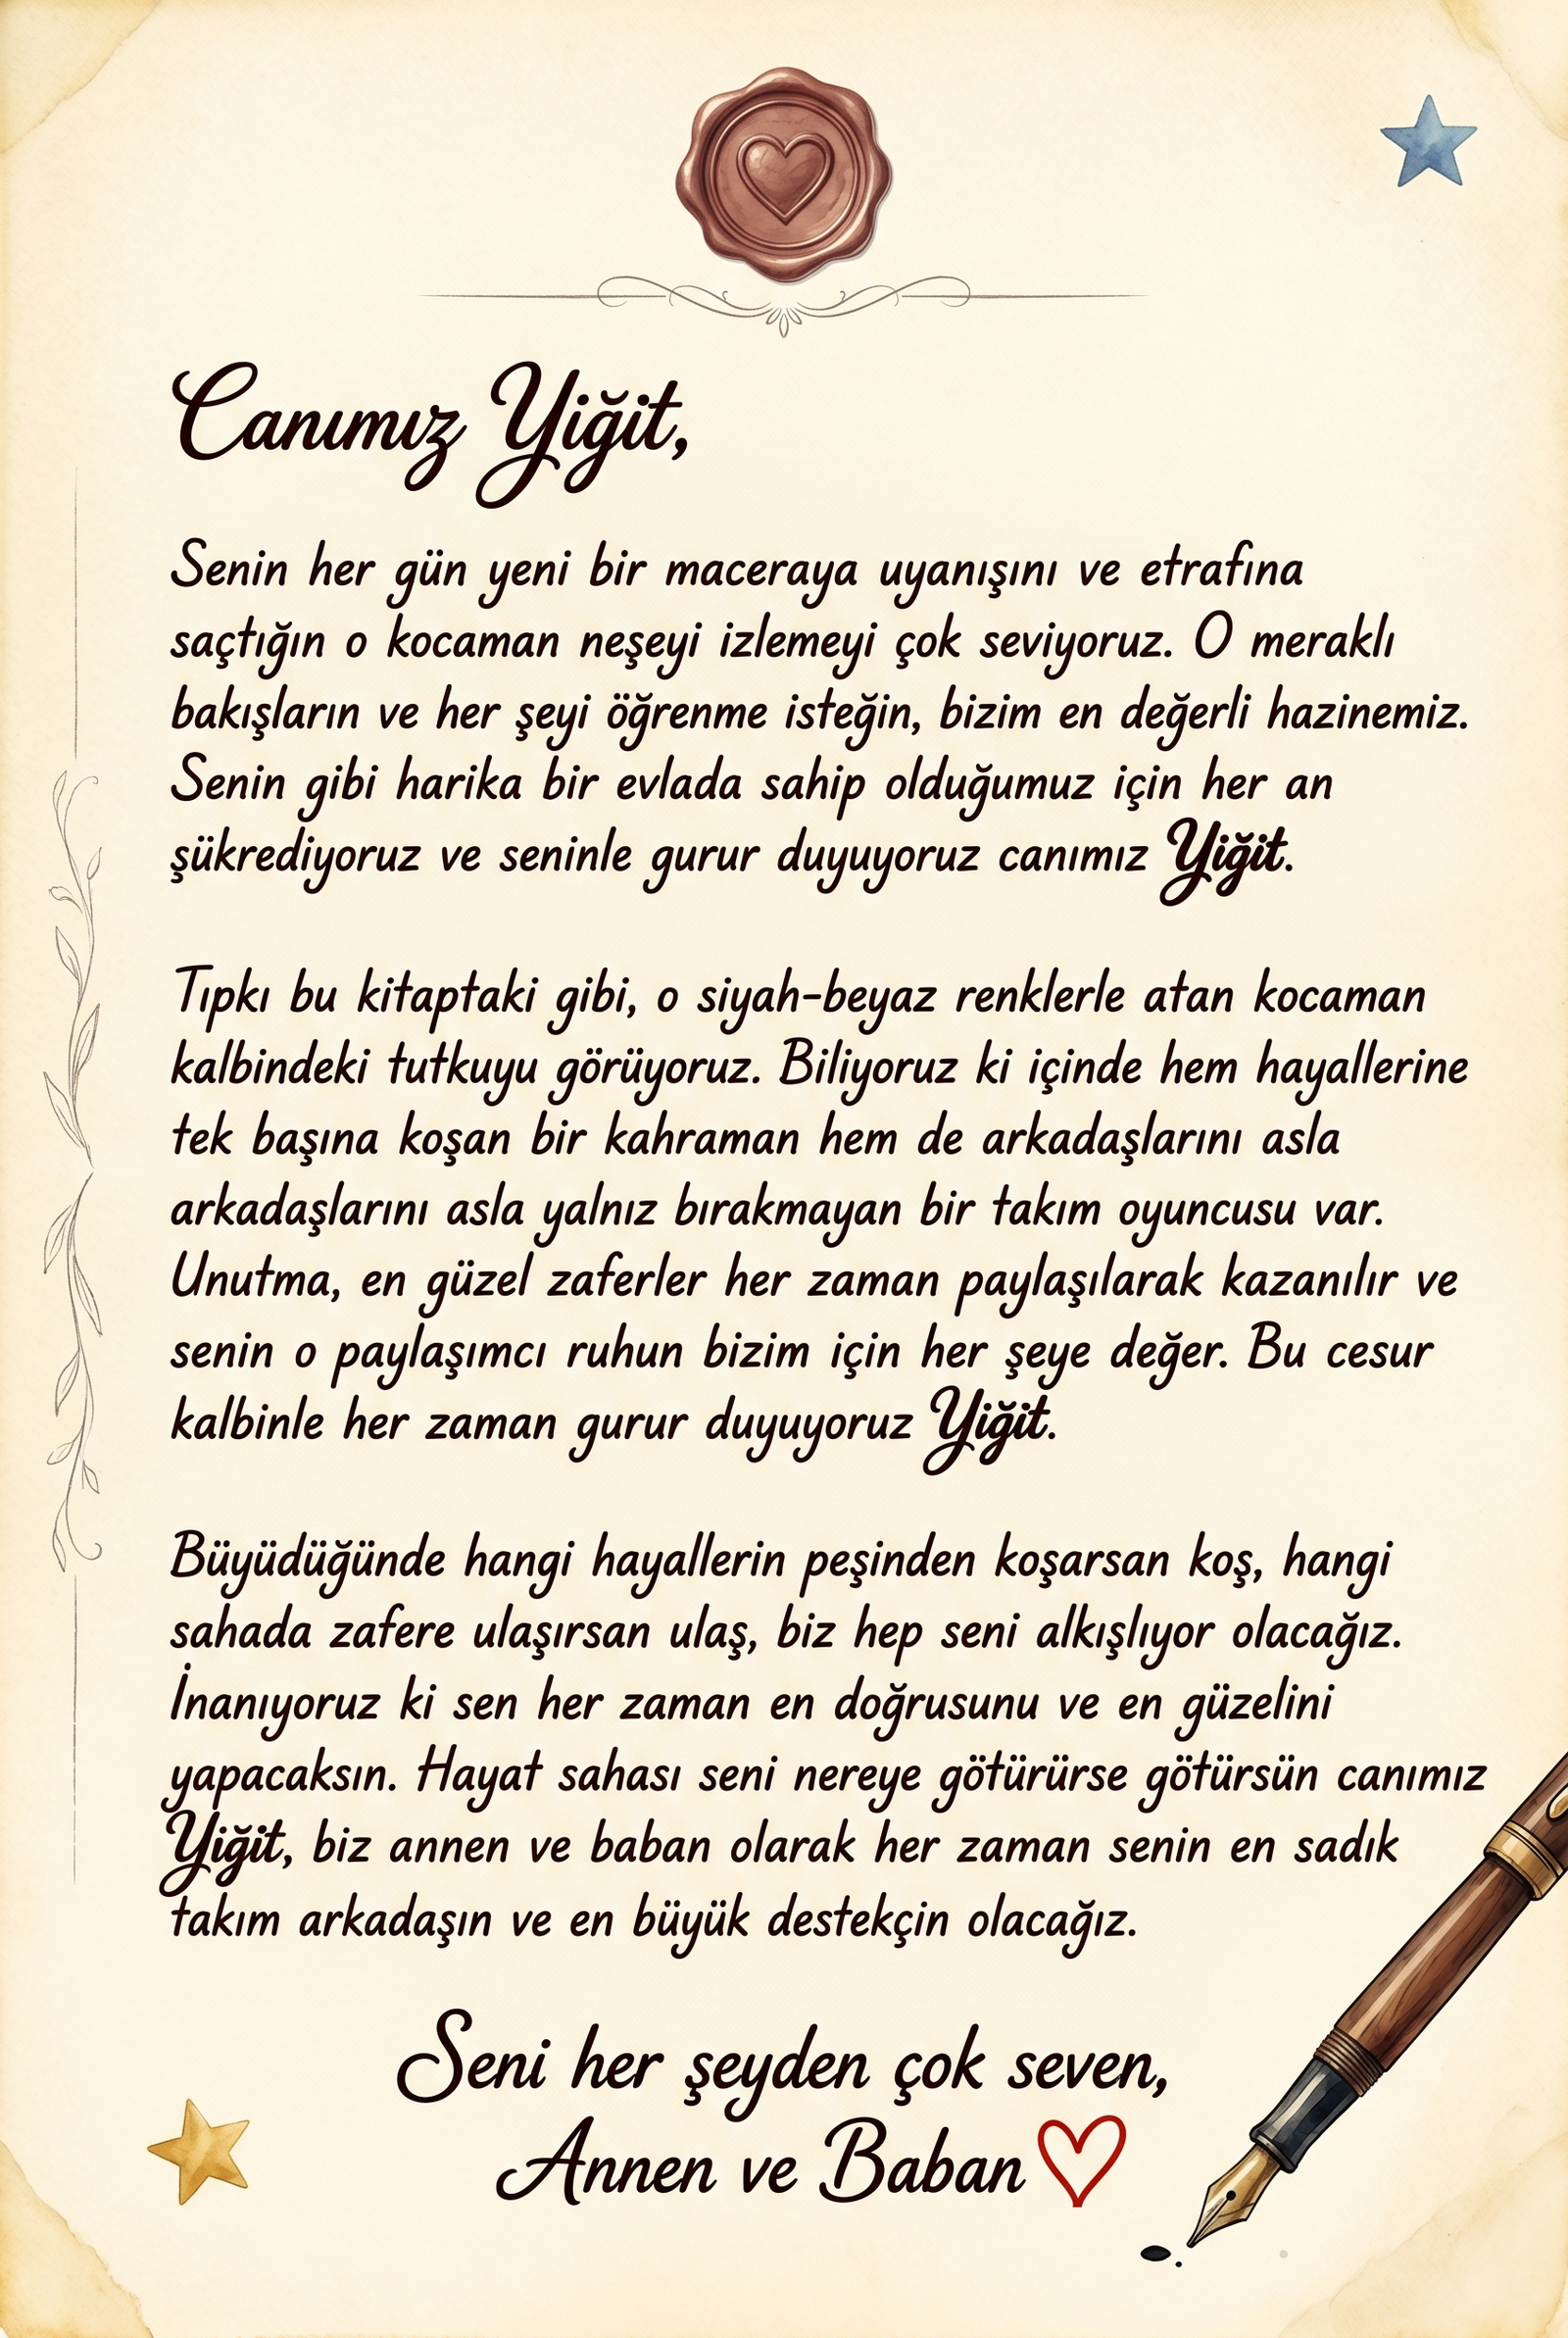 Canımız Yiğit,
Senin her gün yeni bir maceraya uyanışını ve etrafına
saçtığın o kocaman neşeyi izlemeyi çok seviyoruz. O meraklı
bakışların ve her şeyi öğrenme isteğin, bizim en değerli hazinemiz.
Senin gibi harika bir evlada sahip olduğumuz için her an
şükrediyoruz ve seninle gurur duyuyoruz canımız Yiğit.
Tıpkı bu kitaptaki gibi, o siyah-beyaz renklerle atan kocaman
kalbindeki tutkuyu görüyoruz. Biliyoruz ki içinde hem hayallerine
tek başına koşan bir kahraman hem de arkadaşlarını asla
arkadaşlarını asla yalnız bırakmayan bir takım oyuncusu var.
Unutma, en güzel zaferler her zaman paylaşılarak kazanılır ve
senin o paylaşımcı ruhun bizim için her şeye değer. Bu cesur
kalbinle her zaman gurur duyuyoruz Yiğit.
Büyüdüğünde hangi hayallerin peşinden koşarsan koş, hangi
sahada zafere ulaşırsan ulaş, biz hep seni alkışlıyor olacağız.
İnanıyoruz ki sen her zaman en doğrusunu ve en güzelini
yapacaksın. Hayat sahası seni nereye götürürse götürsün canımız
Yiğit, biz annen ve baban olarak her zaman senin en sadık
takım arkadaşın ve en büyük destekçin olacağız.
Seni her şeyden çok seven,
Annen ve Baban